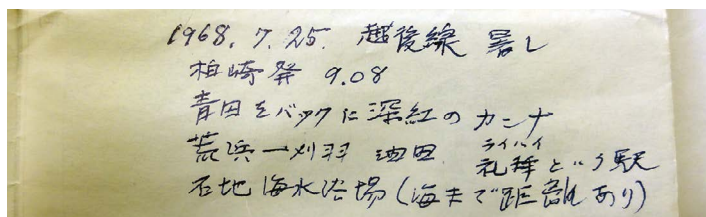 1968. 7. 25. 越後線 暑し
柏崎発 9.08
青田をバックに深紅のカンナ
荒浜―刈羽 油田 礼拝という駅
ライハイ
石地海水浴場(海まで距離あり)